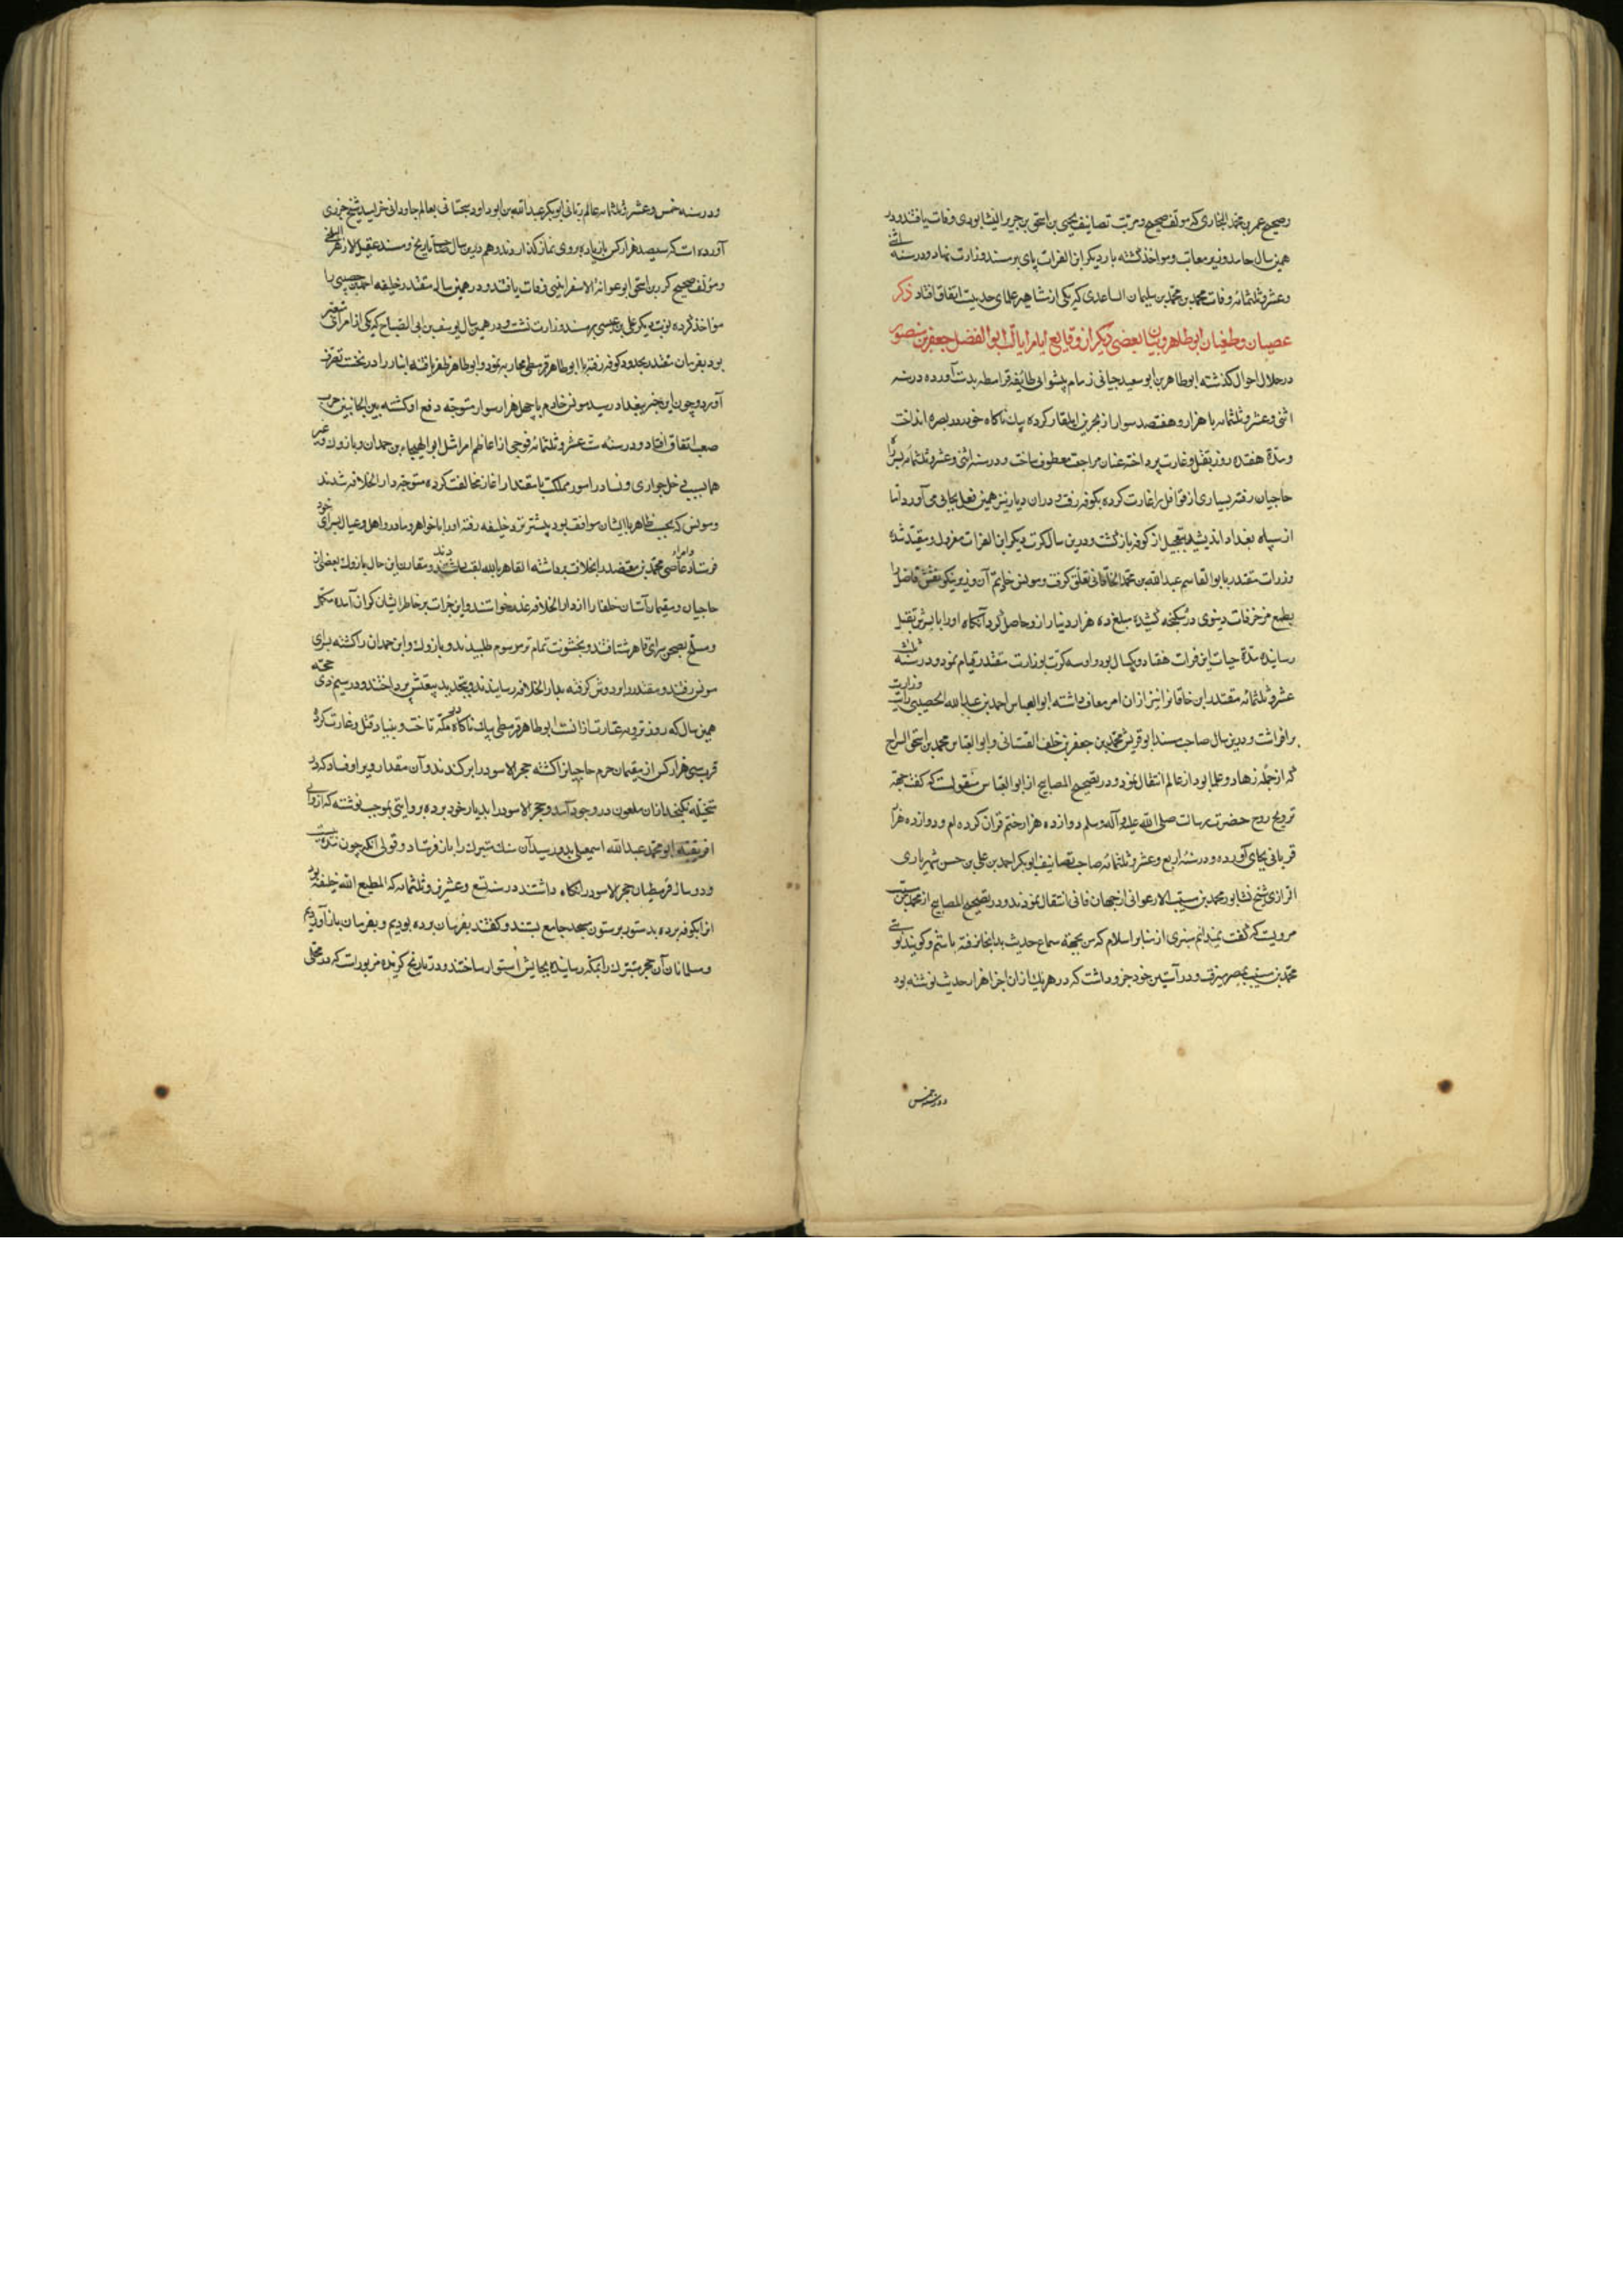 وصحیح عمر بن محمد البخاری که مولف صحیح و مرتب تصانیف یحیی بن اسحق بن جریر النیشابوری وفات یافتند و در
همین سال حامد وزیر معاتب و مواخذ گشته بار دیگر ابن الفرات پای بر مسند وزارت نهاد و در سنه اثنی
وعشر و ثلثمائه وفات محمد بن محمد بن سلیمان الساعدی که یکی از مشاهیر علمای حدیث اتفاق افتاد ذکر
عصیان و طغیان ابو طاهر و بیان بعضی دیگر از وقایع ایام ایالت ابو الفضل جعفر بن منصور
در خلال احوال گذشته ابو طاهر بن ابو سعید جبانی زمام پیشوایی طائفه قرامطه بدست آورده در سنه
اثنی و عشر و ثلثمائه با هزار و هفتصد سوار از بحرین ایلغار کرده بیک ناکاه خود در بصره انداخت
و مدة هفده روز بقتل و غارت پرداخته عنان مراجعت معطوف ساخت و در سنه اثنی و عشر و ثلثمائه بسر راه
حاجیان رفته بسیاری از قوافل را غارت کرده بکوفه رفت و دران دیار نیز همین فعل بجای می آورد اما
از سپاه بغداد اندیشیده بتعجیل از کوفه باز گشت و درین سال کرت دیگر ابن الفرات معزول و مقید شده
وزرات مقتدر بابو القاسم عبد الله بن محمد الخاقانی تعلق گرفت و مونس خادم آن وزیر نیکو نفس فاضل را
بطمع مزخرفات دنیوی در شکنجه کشیده مبلغ ده هزار دینار ازو حاصل کرد آنکاه او را با پسرش بقتل
رسانیده مدة حیات ابن فرات هفتاد و یکسال بود و او سه کرت بوزارت مقتدر قیام نمود و در سنه ثلث
عشر و ثلثمائه مقتدر ابن خاقانرا نیز ازان امر معاف داشته ابو العباس احمد بن عبد الله الحصیبی رایت وزارت
بر افراشت و درین سال صاحب مسند ابو قریش محمد بن جعفر بن خلف القستانی و ابو العباس محمد بن اسحق السراج
که از جمله زهاد و علما بود از عالم انتقال نمود و در تصحیح المصابیح از ابو العباس منقولست که گفت جهة
ترویح روح حضرت رسالت صلی الله علیه و آله وسلم دوازده هزار ختم قرآن کرده ام و دوازده هزار
قربانی بجای آورده و در سنه اربع و عشر و ثلثمائه صاحب تصانیف ابو بکر احمد بن علی بن حسن شهریاری
الرازی شیخ نشابور محمد بن مسیب الارعوانی از جهان فانی انتقال نمودند و در تصحیح المصابیح از محمد بن مسیب
مرویست که گفت نمیدانم منبری از منابر اسلام که من بجهة سماع حدیث بدانجا نرفته باشم و گویند
محمد بن مسیب بمصر میرفت و در آستین خود جزو داشت که در هر یک ازان اجزا هزار حدیث نوشته بود
در سنه خمس
و در سنه خمس و عشر و ثلثمائه عالم ربانی ابو بکر عبد الله بن ابو داود سجستانی بعالم جاودانی خرامید شیخ جزری
آورده است که سیصد هزار کس با زیاده بر وی نماز کذاردند و هم درین سال صاحب تاریخ و مسند عقیل الازهر البلخی
و مؤلف صحیح بن اسحق ابو عوانة الاسفراینی وفات یافتند و در همین سال مقتدر خلیفه احمد حصیبی را
مواخذ کرده نوبت دیگر علی بن عیسی بر مسند وزارت نشست و در همین سال یوسف بن ابی الصباح که یکی از امراء
بود بفرمان مقتدر بحدود کوفه رفته با ابو طاهر قرمطی محاربه نمود و ابو طاهر ظفر یافته انبار را در تحت تصرف
آورد و چون این خبر ببغداد رسید مونس خادم با چهل هزار سوار متوجه دفع او گشته بین الجانبین حرب
صعب اتفاق افتاد و در سنه ست عشر و ثلثمائه فوجی از اعاظم امرا مثل ابو الهیجاء بن حمدان و بازوک و غیر
هما بسبب دخل جواری و نسا در امور مملکت با مقتدر آغاز مخالفت کرده متوجه دار الخلافه شدند
و مونس که بحسب ظاهر با ایشان موافق بود پیشتر نزد خلیفه رفته او را با خواهر و مادر و اهل و عیال بسرای خود
فرستاد و امراء عاصی محمد بن معتضد را بخلافت برداشته القاهر بالله لقب دادند و مقارن این حال بازوک بعضی از
حاجیان و مقیمان آستان خلفا را از دار الخلافه عذر خواستند و این جرات بر خاطر ایشان کران آمده مکمل
و مسلح بصحن سرای قاهر شتافتند و بخشونت تمام تر مرسوم طلبیدند و بازوک و ابن حمدان را کشته بسرای
مونس رفتند و مقتدر را بر دوش گرفته بدار الخلافه رسانیدند و بتجدید بیعتش پرداختند و در سیم ذی حجه
همین سال که روز ترویه عبارت ازانست ابو طاهر قرمطی بیک ناکاه در مکه تاخت و بنیاد قتل و غارت کرد
قریب سی هزار کس از مقیمان حرم حاجیانرا کشته حجر الاسود را بر کندند و آن مقدار و بیراو فساد که در
متخیله نکنجد ازان ملعون در وجود آمد و حجر الاسود را بدیار خود برده بروایتی بموجب نوشته که از والی
افریقیه ابو محمد عبد الله اسمعیلی بدو رسید آن سنک متبرک را باز فرستاد و قولی آنکه چون مدت بیست
و دو سال قرمطیان حجر الاسود را نگاه داشتند در سنه تسع و عشرین و ثلثمائه که المطیع الله خلیفه بود
انرا بکوفه برده بدستور بر ستون مسجد جامع بستند و گفتند بفرمان برده بودیم و بفرمان باز آوردیم
و مسلمانان آن حجر متبرک را بمکه رسانیده بجایش استوار ساختند و در تاریخ گزیده مزبور است که در محلی